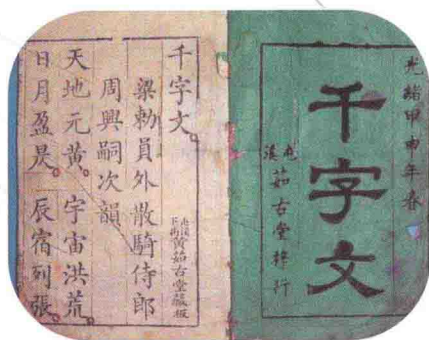 光緒甲申年春
千字文
茹古堂梓行
千字文。
梁勅員外散騎侍郎
周興嗣次韻
黃茹古堂藏板
天地元黃。宇宙洪荒。
日月盈昃。辰宿列張。